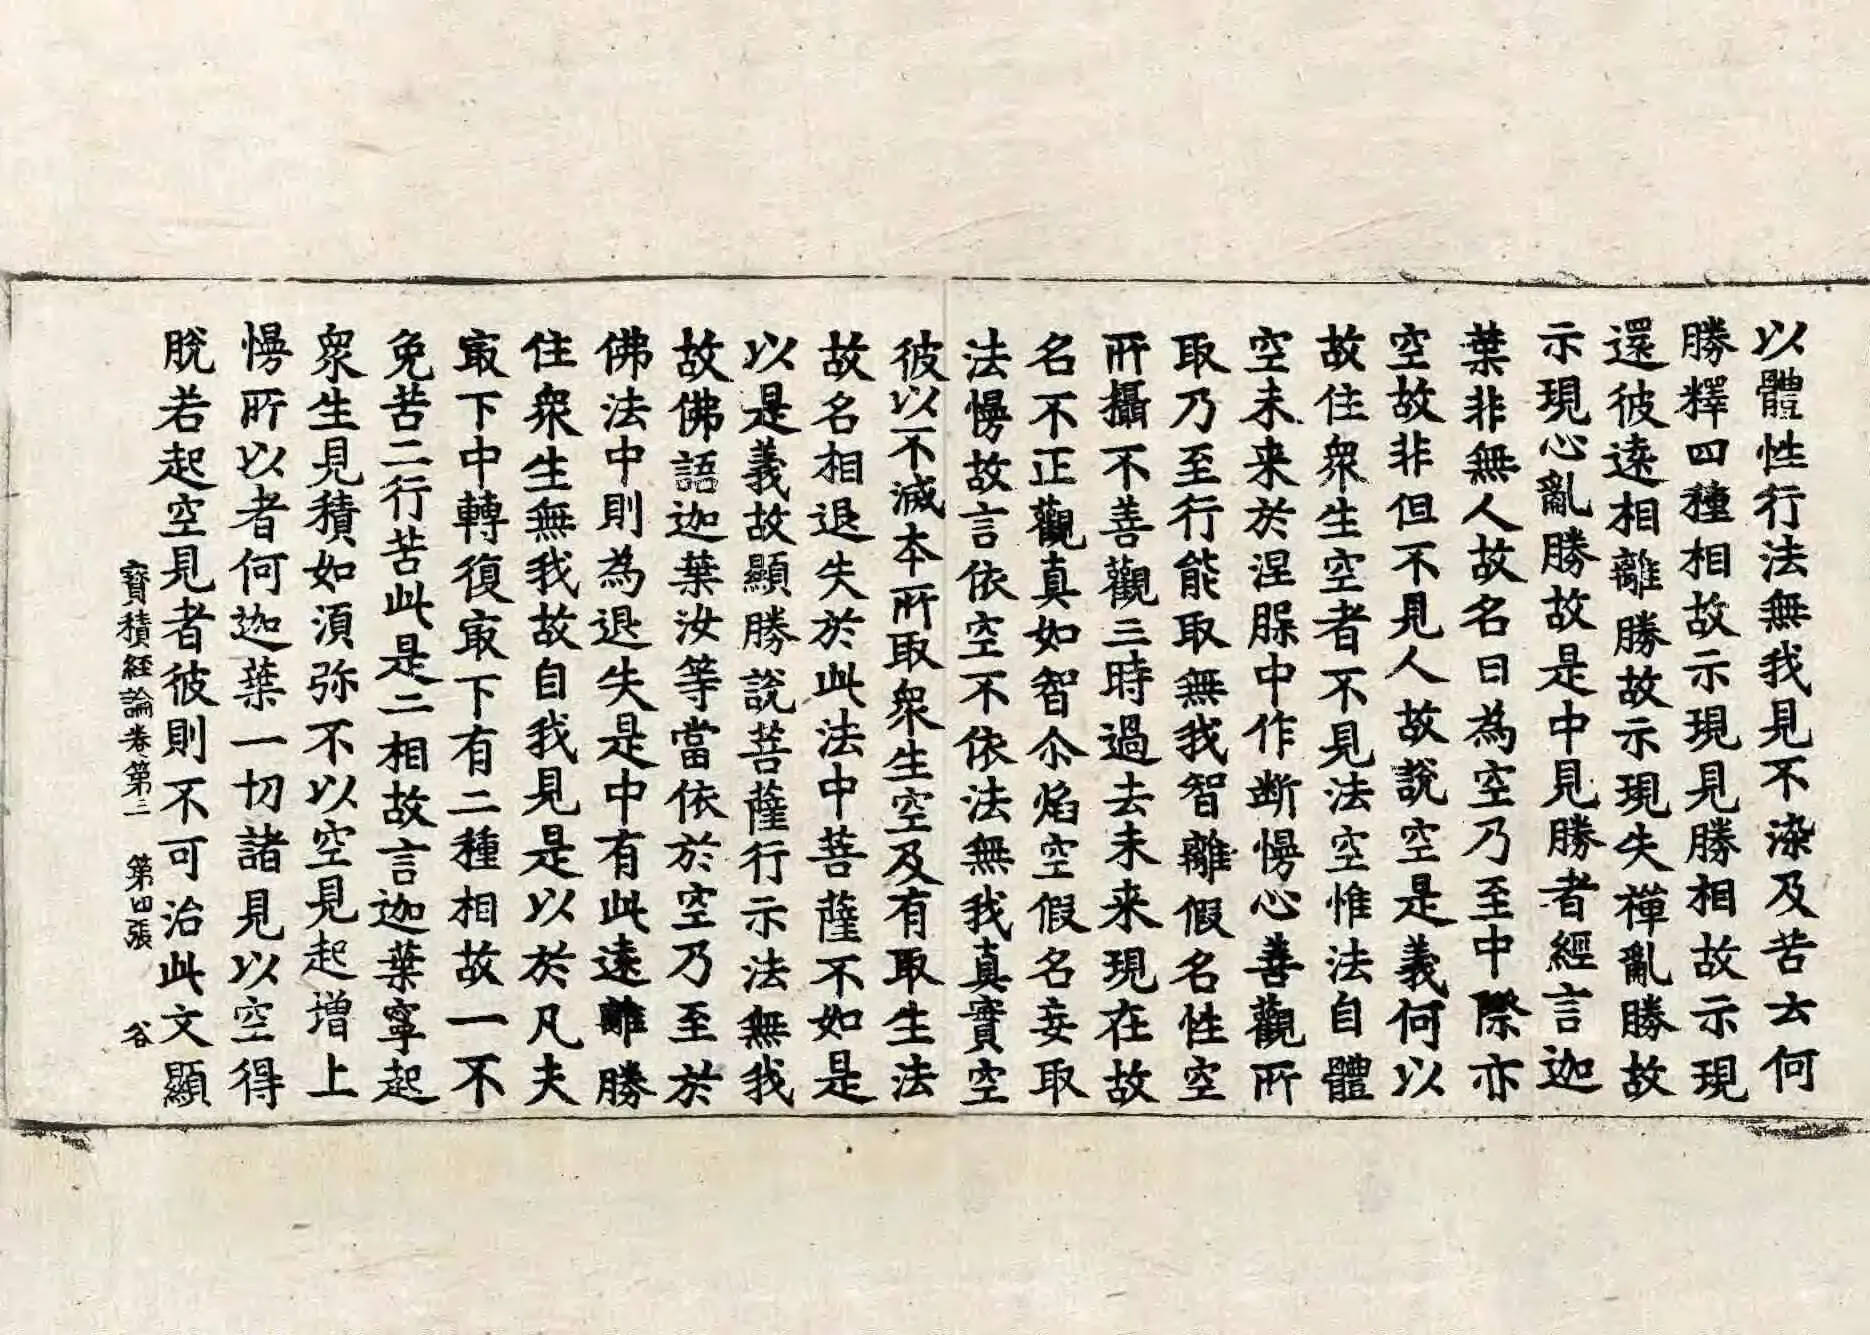 以體性行法無我見不染及苦去何
勝釋四種相故示現見勝相故示現
還彼遠相離勝故示現失禪亂勝故
示現心亂勝故是中見勝者經言迦
葉非無人故名曰為空乃至中際亦
空故非但不見人故說空是義何以
故住衆生空者不見法空惟法自體
空未来於涅槃中作斷慢心善觀所
取乃至行能取無我智離假名性空
所攝不善觀三時過去未来現在故
名不正觀真如智尒焰空假名妄取
法慢故言依空不依法無我真實空
彼以不滅本所取衆生空及有取生法
故名相退失於此法中菩薩不如是
以是義故顯勝說菩薩行示法無我
故佛語迦葉汝等當依於空乃至於
佛法中則為退失是中有此遠離勝
住衆生無我故自我見是以於凡夫
㝡下中轉復㝡下有二種相故一不
免苦二行苦此是二相故言迦葉寧起
衆生見積如湏弥不以空見起增上
慢所以者何迦葉一切諸見以空得
脫若起空見者彼則不可治此文顯
寶積經論卷第三　第四張　谷